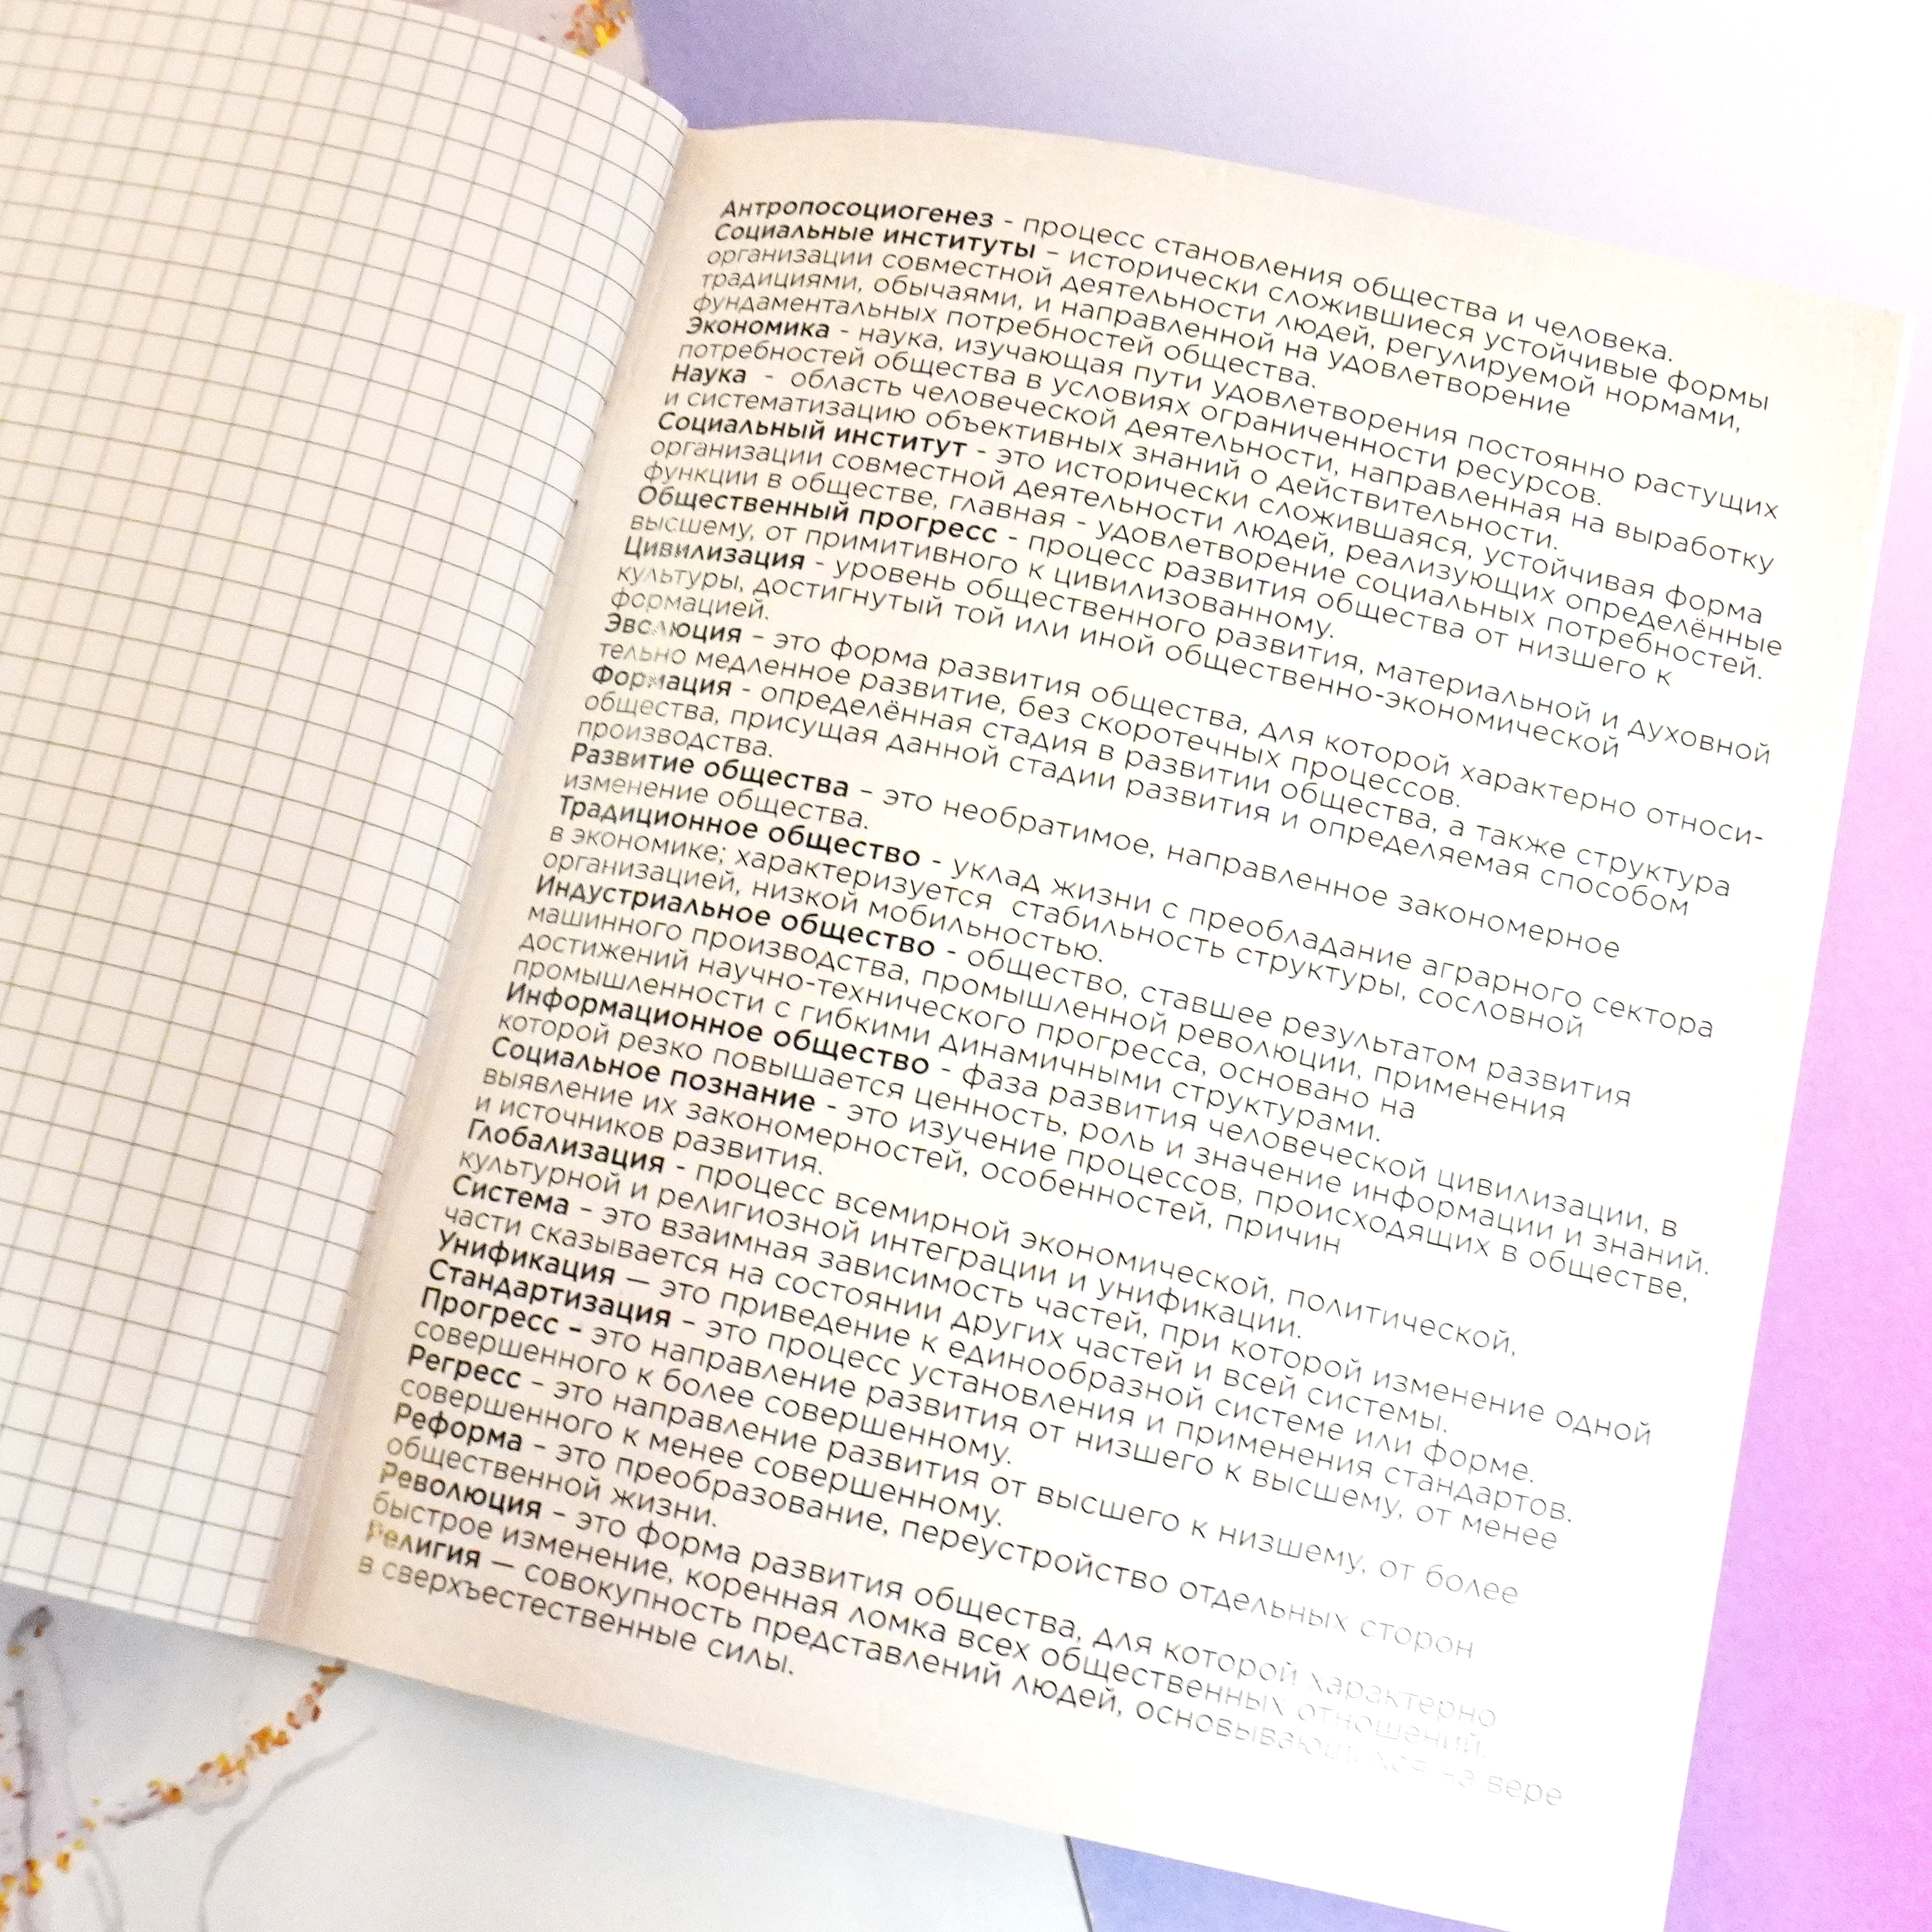 Антропосоциогенез - процесс становления общества и человека.
Социальные институты – исторически сложившиеся устойчивые формы
организации совместной деятельности людей, регулируемой нормами,
традициями, обычаями, и направленной на удовлетворение
фундаментальных потребностей общества.
Экономика - наука, изучающая пути удовлетворения постоянно растущих
потребностей общества в условиях ограниченности ресурсов.
Наука - область человеческой деятельности, направленная на выработку
и систематизацию объективных знаний о действительности.
Социальный институт - это исторически сложившаяся, устойчивая форма
организации совместной деятельности людей, реализующих определённые
функции в обществе, главная - удовлетворение социальных потребностей.
Общественный прогресс - процесс развития общества от низшего к
высшему, от примитивного к цивилизованному.
Цивилизация - уровень общественного развития, материальной и духовной
культуры, достигнутый той или иной общественно-экономической
формацией.
Эволюция – это форма развития общества, для которой характерно относи-
тельно медленное развитие, без скоротечных процессов.
Формация - определённая стадия в развитии общества, а также структура
общества, присущая данной стадии развития и определяемая способом
производства.
Развитие общества – это необратимое, направленное закономерное
изменение общества.
Традиционное общество - уклад жизни с преобладание аграрного сектора
в экономике; характеризуется стабильность структуры, сословной
организацией, низкой мобильностью.
Индустриальное общество - общество, ставшее результатом развития
машинного производства, промышленной революции, применения
достижений научно-технического прогресса, основано на
промышленности с гибкими динамичными структурами.
Информационное общество - фаза развития человеческой цивилизации, в
которой резко повышается ценность, роль и значение информации и знаний.
Социальное познание - это изучение процессов, происходящих в обществе,
выявление их закономерностей, особенностей, причин
и источников развития.
Глобализация - процесс всемирной экономической, политической,
культурной и религиозной интеграции и унификации.
Система – это взаимная зависимость частей, при которой изменение одной
части сказывается на состоянии других частей и всей системы.
Унификация — это приведение к единообразной системе или форме.
Стандартизация – это процесс установления и применения стандартов.
Прогресс – это направление развития от низшего к высшему, от менее
совершенного к более совершенному.
Регресс – это направление развития от высшего к низшему, от более
совершенного к менее совершенному.
Реформа – это преобразование, переустройство отдельных сторон
общественной жизни.
Революция – это форма развития общества, для которой характерно
быстрое изменение, коренная ломка всех общественных отношений.
Религия — совокупность представлений людей, основывающихся на вере
в сверхъестественные силы.